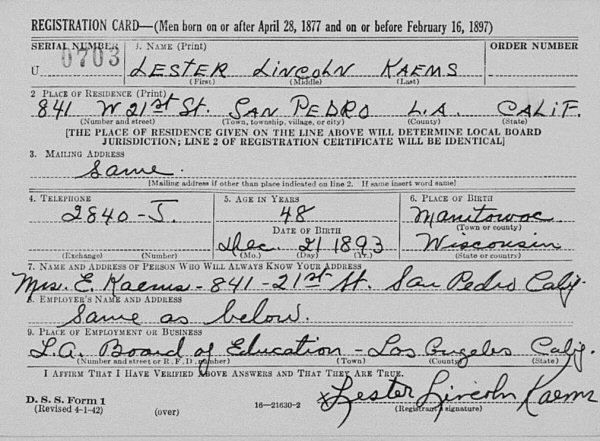 REGISTRATION CARD—(Men born on or after April 28, 1877 and on or before February 16, 1897)
SERIAL NUMBER 1. NAME (Print) ORDER NUMBER
U 0703 LESTER LINCOLN KAEMS
(First) (Middle) (Last)
2. PLACE OF RESIDENCE (Print)
841 W 21st St. SAN PEDRO L.A. CALIF.
(Number and street) (Town, township, village, or city) (County) (State)
[THE PLACE OF RESIDENCE GIVEN ON THE LINE ABOVE WILL DETERMINE LOCAL BOARD
JURISDICTION; LINE 2 OF REGISTRATION CERTIFICATE WILL BE IDENTICAL]
3. MAILING ADDRESS
Same.
[Mailing address if other than place indicated on line 2. If same insert word same]
4. TELEPHONE 5. AGE IN YEARS 6. PLACE OF BIRTH
2840-J. 48 Manitowoc
DATE OF BIRTH (Town or county)
Dec. 21 1893 Wisconsin
(Exchange) (Number) (Mo.) (Day) (Yr.) (State or country)
7. NAME AND ADDRESS OF PERSON WHO WILL ALWAYS KNOW YOUR ADDRESS
Mrs. E. Kaems - 841 - 21st St. San Pedro Calif.
8. EMPLOYER'S NAME AND ADDRESS
Same as below.
9. PLACE OF EMPLOYMENT OR BUSINESS
L.A. Board of Education - Los Angeles Calif.
(Number and street or R. F. D. number) (Town) (County) (State)
I AFFIRM THAT I HAVE VERIFIED ABOVE ANSWERS AND THAT THEY ARE TRUE.
D. S. S. Form 1 x Lester Lincoln Kaems
(Revised 4-1-42) (over) 16—21630-2 (Registrant's signature)